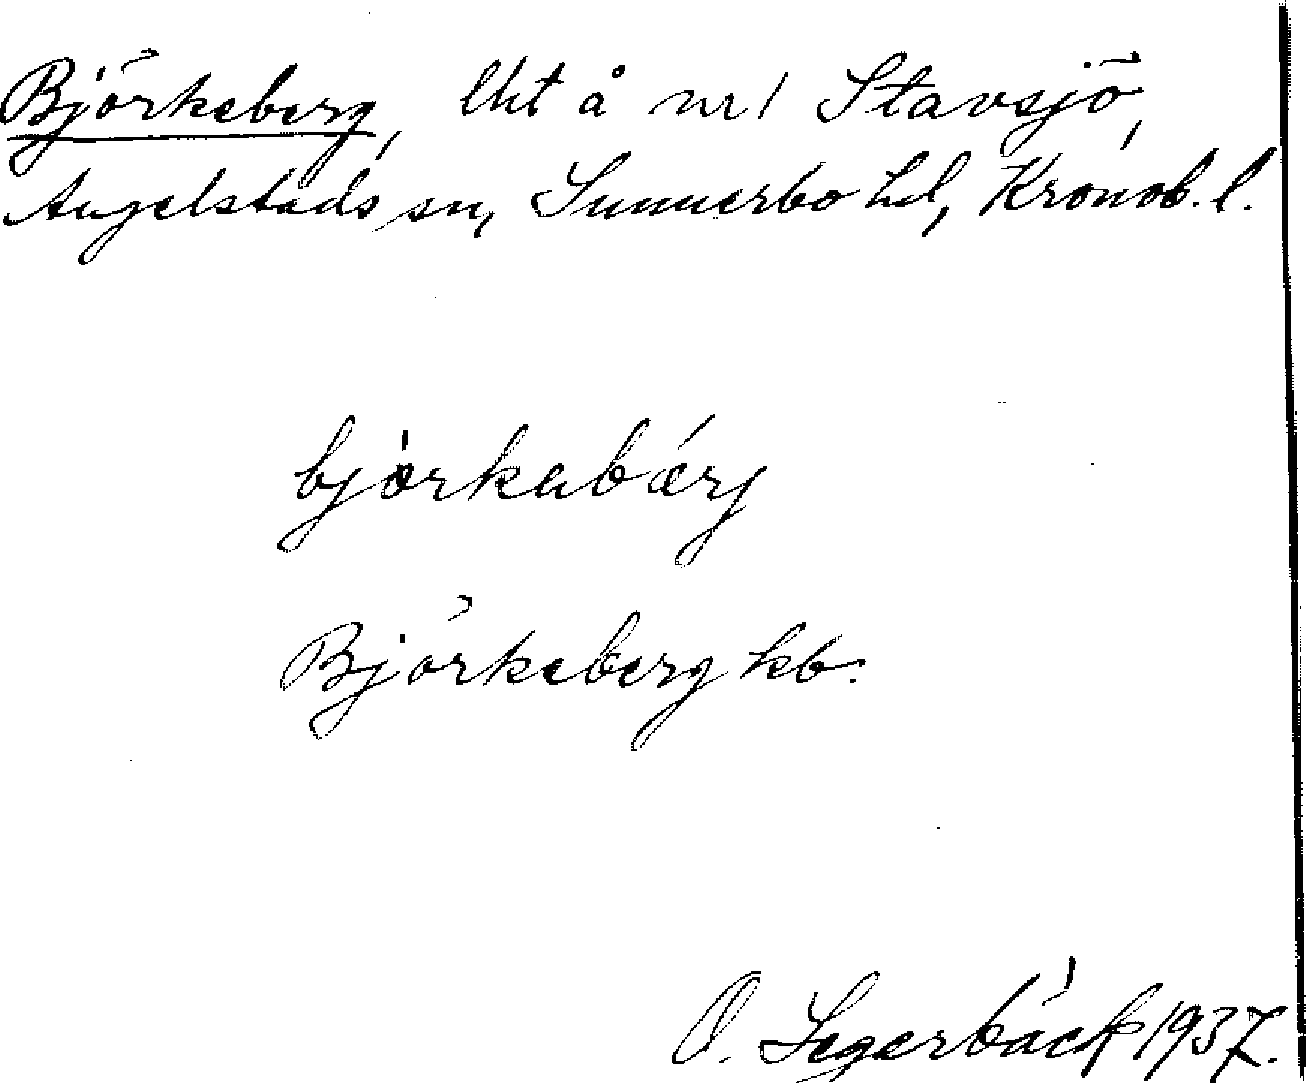 Björkeberg, lht å nr 1 Stavsjö,
Angelstads sn, Sunnerbo hd, Kronob. l.
bjö̀rkabærj
Björkeberg kb.
O. Segerbäck 1937.